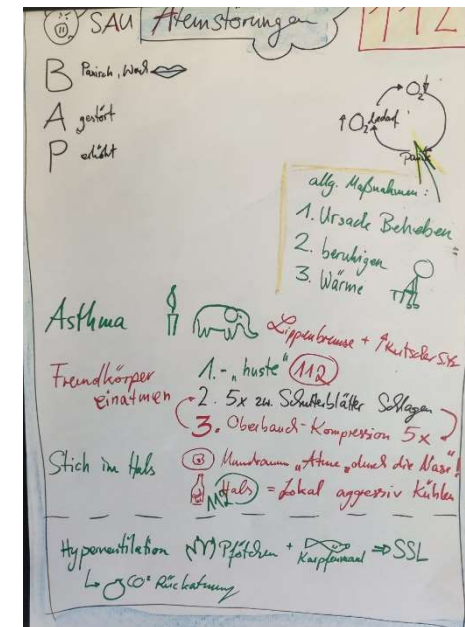 SAU Atemstörungen 112
B Panisch, Wach
A gestört
P erhöht
O₂
↑O₂ bedarf
Panik
allg. Maßnahmen:
1. Ursache Beheben
2. beruhigen
3. Wärme
Asthma Lippenbremse + Kutscher Sitz
Fremdkörper einatmen
1. - "huste" 112
2. 5x zw. Schulterblätter Schlagen
3. Oberbauch-Kompression 5x
Stich im Hals Mundraum "Atme durch die Nase!
Hals = Lokal aggressiv Kühlen
112
Hyperventilation Pfötchen + Karpfenmaul ⇒ SSL
↳ CO² Rückatmung